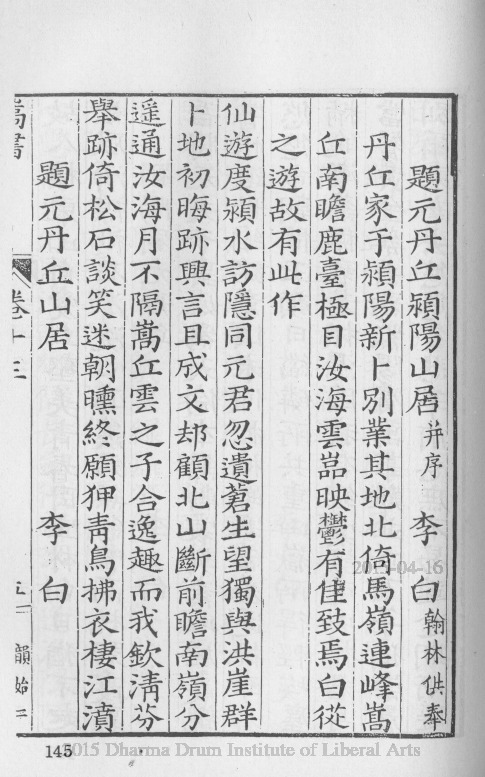 題元丹丘潁陽山居并序 李白翰林供奉
丹丘家于潁陽新卜別業其地北倚馬嶺連峰嵩
丘南瞻鹿臺極目汝海雲嵓映鬱有佳致焉白從
之遊故有此作
仙遊度潁水訪隱同元君忽遺蒼生望獨與洪崖群
卜地初晦跡興言且成文却顧北山斷前瞻南嶺分
遥通汝海月不隔嵩丘雲之子合逸趣而我欽淸芬
舉跡倚松石談笑迷朝曛終願狎靑鳥拂衣棲江濆
題元丹丘山居 李白
嵩書 卷十三 韻始三
145
2015 Dharma Drum Institute of Liberal Arts